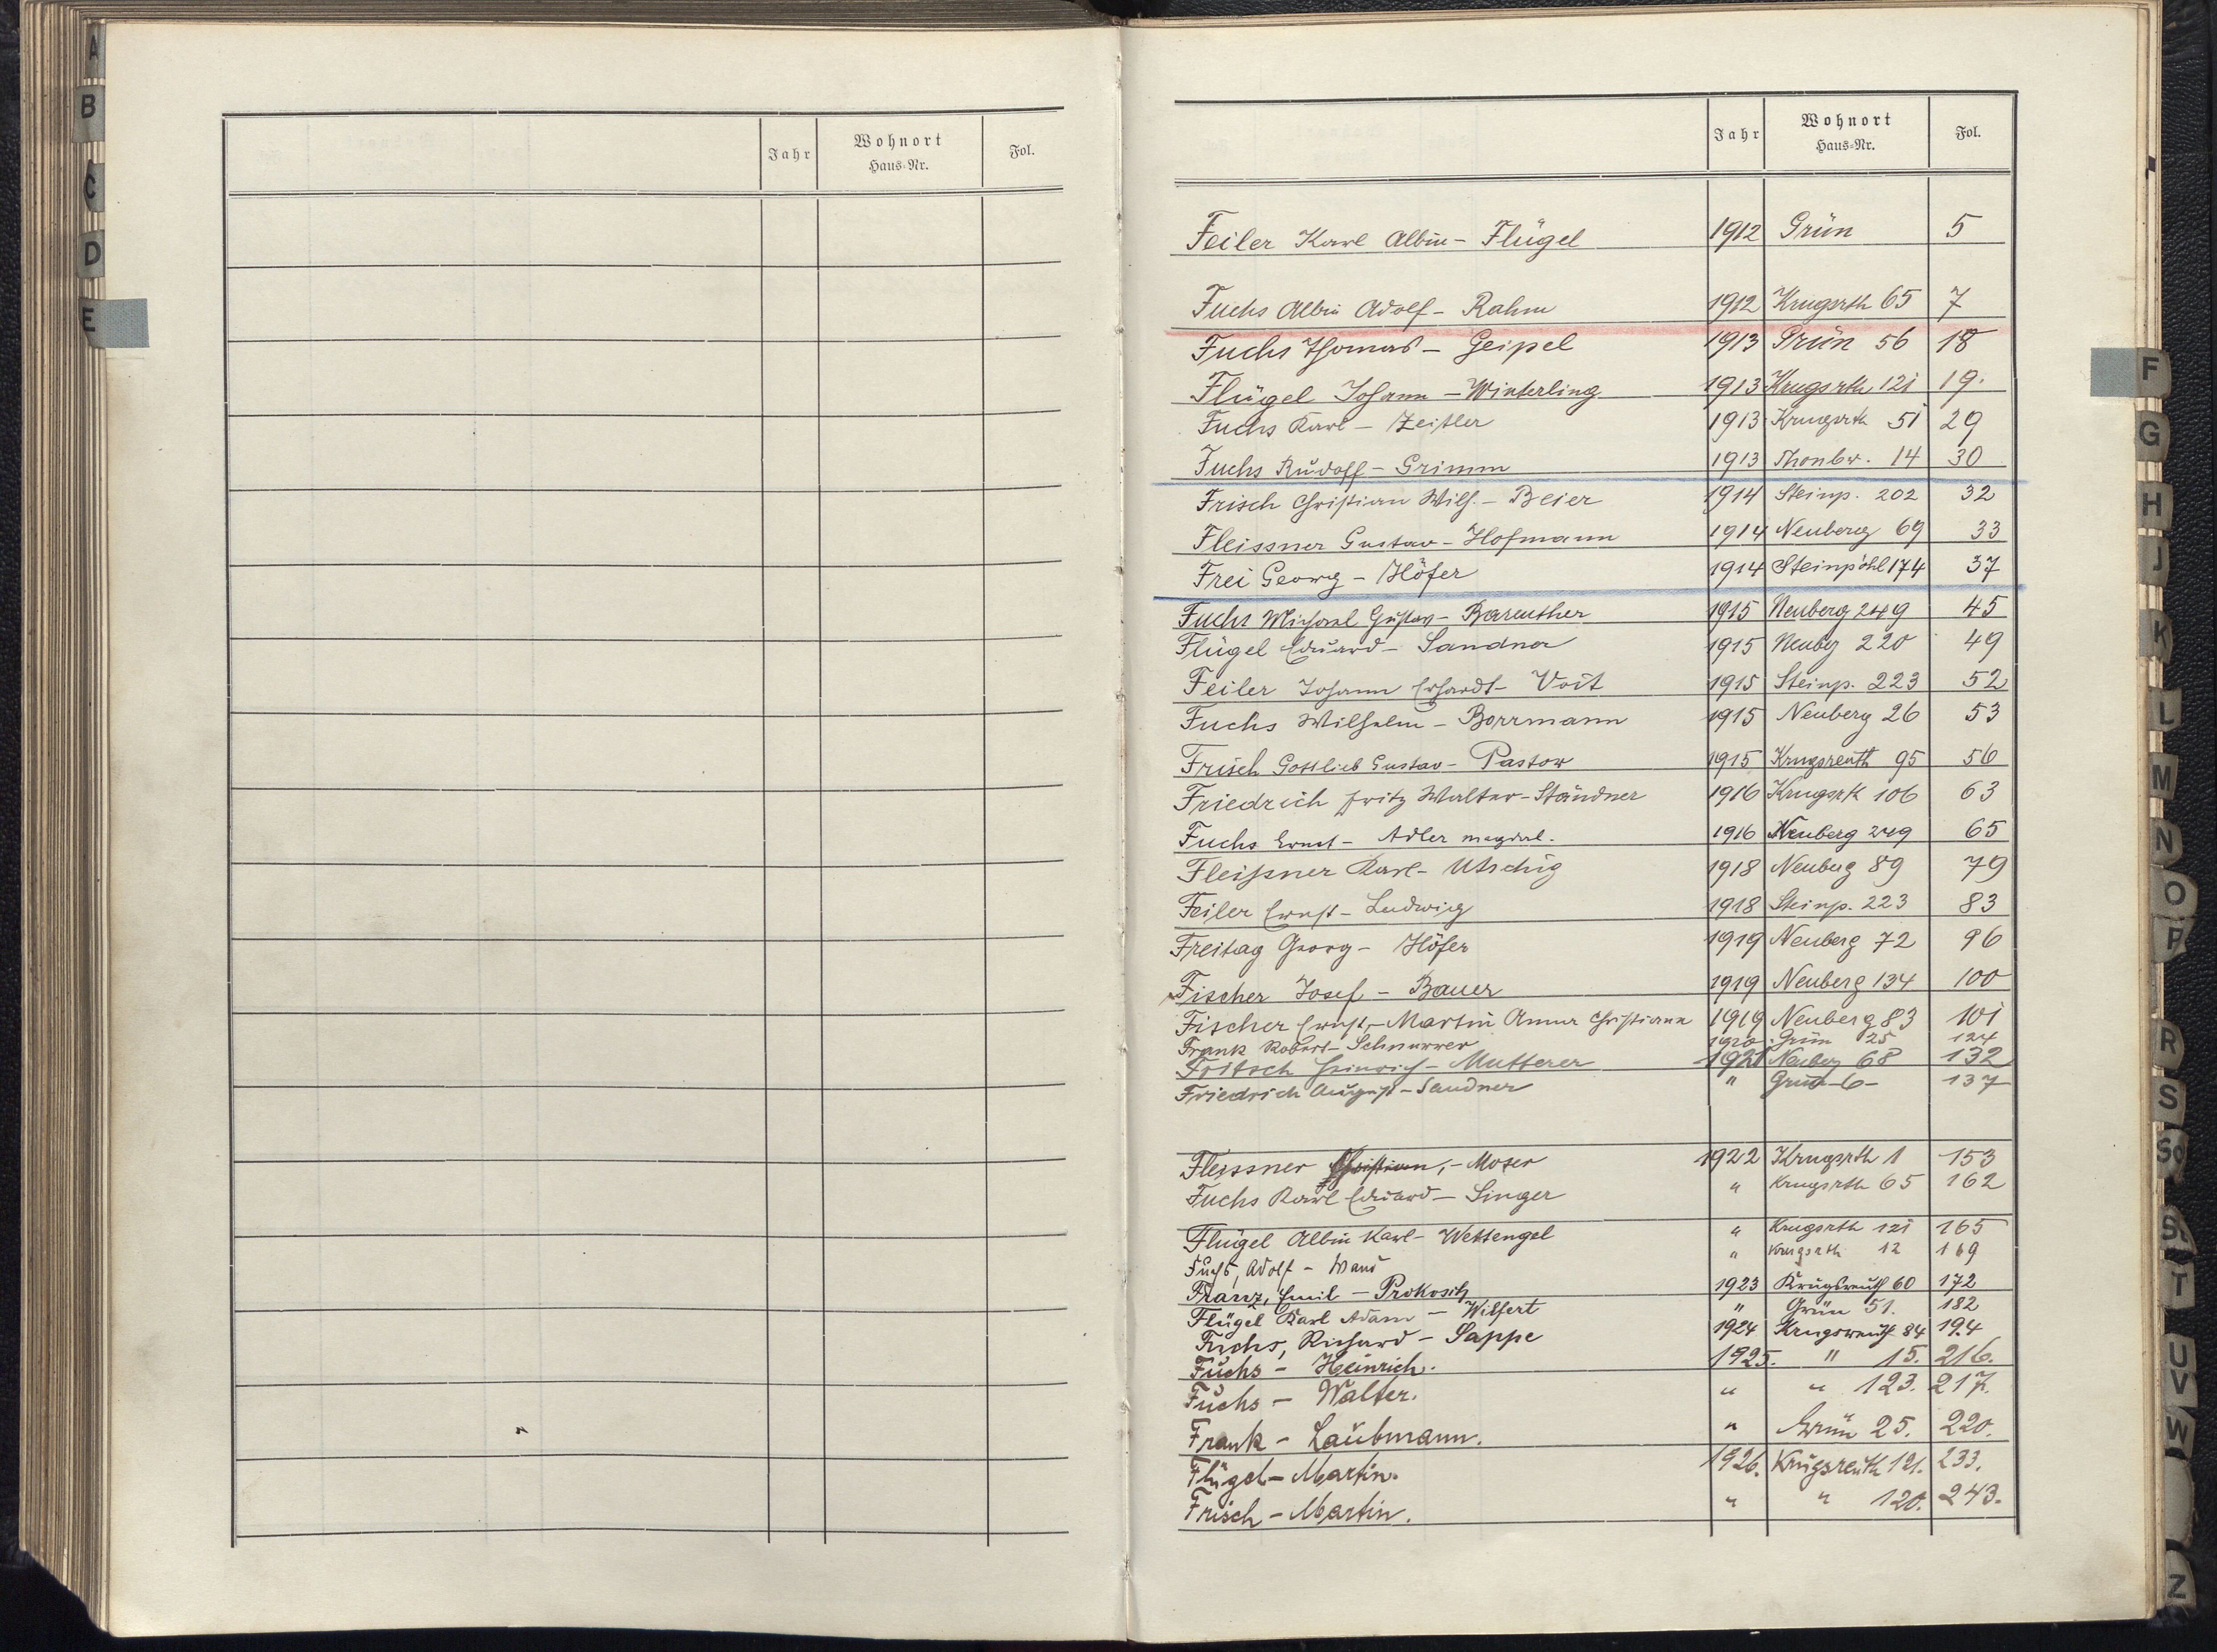 A
B
C
D
E
Jahr Wohnort Haus-Nr. Fol.
Jahr Wohnort Haus-Nr. Fol.
Feiler Karl Albin - Flügel 1912 Grün 5
Fuchs Albin Adolf - Rahm 1912 Krugsrth 65 7
Fuchs Thomas - Geipel 1913 Grün 56 18
Flügel Johann - Winterling 1913 Krugsrth 121 19.
Fuchs Karl - Zeitler 1913 Krugsrth 51 29
Fuchs Rudolf - Grimm 1913 Thonbr. 14 30
Frisch Christian Wilh. - Beier 1914 Steinp. 202 32
Fleissner Gustav - Hofmann 1914 Neuberg 69 33
Frei Georg - Höfer 1914 Steinpöhl 174 37
Fuchs Michael Gustav - Bareuther 1915 Neuberg 249 45
Flügel Eduard - Sandner 1915 Neubg 220 49
Feiler Johann Erhardt - Voit 1915 Steinp. 223 52
Fuchs Wilhelm - Borrmann 1915 Neuberg 26 53
Frisch Gottlieb Gustav - Pastor 1915 Krugsreuth 95 56
Friedrich Fritz Walter - Ständner 1916 Krugsrk 106 63
Fuchs Ernst - Adler Magdal. 1916 Neuberg 249 65
Fleißner Karl - Utschig 1918 Neuberg 89 79
Feiler Ernst - Ludwig 1918 Steinp. 223 83
Freitag Georg - Höfer 1919 Neuberg 72 96
Fischer Josef - Bauer 1919 Neuberg 134 100
Fischer Ernst, - Martin Anna Christiane 1919 Neuberg 83 101
Frank Robert - Schnurrer 1920 Grün 25 124
Fritsch Heinrich - Mutterer 1921 Neuberg 68 132
Friedrich August - Sandner " Grün -6- 137
Fleissner Christian, - Moser 1922 Krugsrth 1 153
Fuchs Karl Eduard - Singer " Krugsrth 65 162
Flügel Albin Karl - Wettengel " Krugsrth 121 165
Fuchs, Adolf - " Krugsrth 12 169
Franz, Emil - Prokosch 1923 Krugsreuth 60 172
Flügel Karl Adam - Wilfert " Grün 51. 182
Fuchs, Richard - Sappe 1924 Krugsreuth 84 194
Fuchs - Heinrich. 1925. " 15. 216.
Fuchs - Walter. " " 123. 217.
Frank - Laubmann. " Grün 25. 220.
Flügel - Martin. 1926. Krugsreuth 121. 233.
Frisch - Martin. " " 120. 243.
F
G
H
J
K
L
M
N
O
P
R
S
Sch
St
T
U
V
W
Z